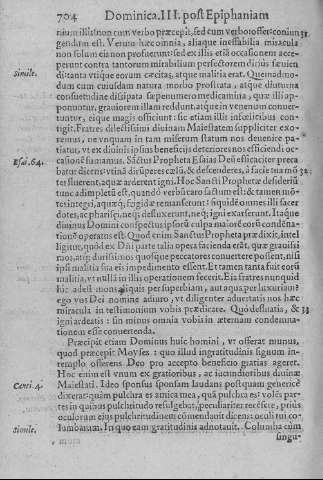 704 Dominica. III. post Epiphaniam
nium illis non cum verbo præcepit, sed cum verbo offert: coniun
gendum est. Verum hæc omnia, aliaque ineffabilia miracula
non solum eis non profuerunt: sed ex illis etiã occasionem acce-
perunt contra tantorum mirabilium perfectorem dirius sæuien
Simile. di: tanta vtique eorum cæcitas, atque malitia erat. Quemadmo-
dum cum cuiusdam natura morbo prostrata, atque diuturna
consuetudine dissipata sæpenumero medcamina, quæ illi ap-
ponuntur, grauiorem illam reddunt, atque in venenum conuer-
tuntur, eique magis officiunt: sic etiam illis infœlicibus con-
tigit. Fratres dilectissimi diuinam Maiestatem suppliciter exo-
remus, ne vnquam in tam miserum statum nos deuenire pa-
tiatur, vt ex diuinis ipsius beneficijs deteriores nos efficiendi oc-
Esai. 64. casionẽ sumamus. Sãctus Propheta Esaias Deũ efficaciter preca
batur dicens: vtinã dirũperes cælũ, & descenderes, à facie tua mõ 31
tes fluerent, aquæ arderent igni. Hoc Sancti Prophetæ desideriũ
tunc adimpletũ est, quando verbũ caro factum est: & tamen mõ-
tes integri, aquæq; frigidæ remanserunt: siquidẽ omnes illi sacer
dotes, ac pharisæi, neq; defluxerunt, neq; igni exarserunt. Itaque
diuinus Domini conspectus ipsorũ culpa maiorẽ eorũ condẽna-
tionẽ operatus est. Quod enim Sanctus Propheta prædixit, intel
ligitur, quòd ex Dñi parte talia opera facienda erãt, quæ grauissi
mos, atq; durissimos quosque peccatores conuertere possent, nisi
ipsa malitia sua eis impedimento esset. Et tamen tanta fuit eorũ
malitia, vt nulla in illis operationem fecerit. Ex quo fratres nunquid
hic adest moraliquis per superbiam, aut aqua per luxuriam?
ego vos Dei nomine adiuro, vt diligenter aduertatis nos hæc
miracula in testimonium vobis prædicare. Quòd estis tuta, & 33
igni ardeatis: sin minus omnia vobis in æternam condemna-
tionem esse conuertenda.
Præcipit etiam Dominus huic homini, vt offerat munus,
quod præcepit Moyses: quo illud ingratitudinis signum in-
templo offerens Deo pro accepto beneficio gratias ageret.
Hoc enim est vnum ex gratioribus, ac iucundioribus diuinæ
Canti. 4. Maiestati. Ideo sponsus sponsam laudans postquam genericè
dixerat: quàm pulchra es amica mea, quã pulchra es: volẽs par-
tes in quibus pulchritudo resulgebat, peculiariter recẽsere, prius
oculorum eius pulchritudinem cõmendauit dicens: oculi tui co-
Simile. lumbarum. In quo eam gratitudinis adnotauit. Columba cũm
singu-